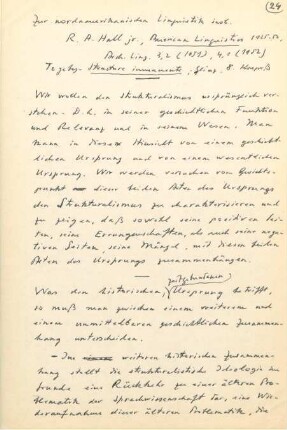 (24)
Zur nordamerikanischen Linguistik insb.
R. A. Hall jr., American Linguistics 1925-50.
Arch. Ling. 3,2 (1951), 4,1 (1952)
Togeby - Structure immanente,
Wir wollen den Strukturalismus ursprünglich ver-
stehen. D. h. in seiner geschichtlichen Funktion
und Relevanz und in seinem Wesen. Man
kann in dieser Hinsicht von einem geschicht-
lichen Ursprung und von einem wesentlichen
Ursprung. Wir werden versuchen vom Gesichts-
punkt dieser beiden Arten des Ursprungs
den Strukturalismus zu charakterisieren und
zu zeigen, daß sowohl seine positiven Sei-
ten, seine Errungenschaften, als auch seine neg-
ativen Seiten, seine Mängel, mit diesen beiden
Arten des Ursprungs zusammenhängen.
Was den historischen, zeitgebundenen Ursprung betrifft,
so muß man zwischen einem weiteren und
einem unmittelbaren geschichtlichen Zusammen-
hang unterscheiden.
- Im weiteren historischen Zusammen-
hang stellt die strukturalistische Ideologie im
Grunde eine Rückkehr zu einer älteren Pro-
blematik der Sprachwissenschaft dar, eine Wie-
deraufnahme dieser älteren Problematik, die